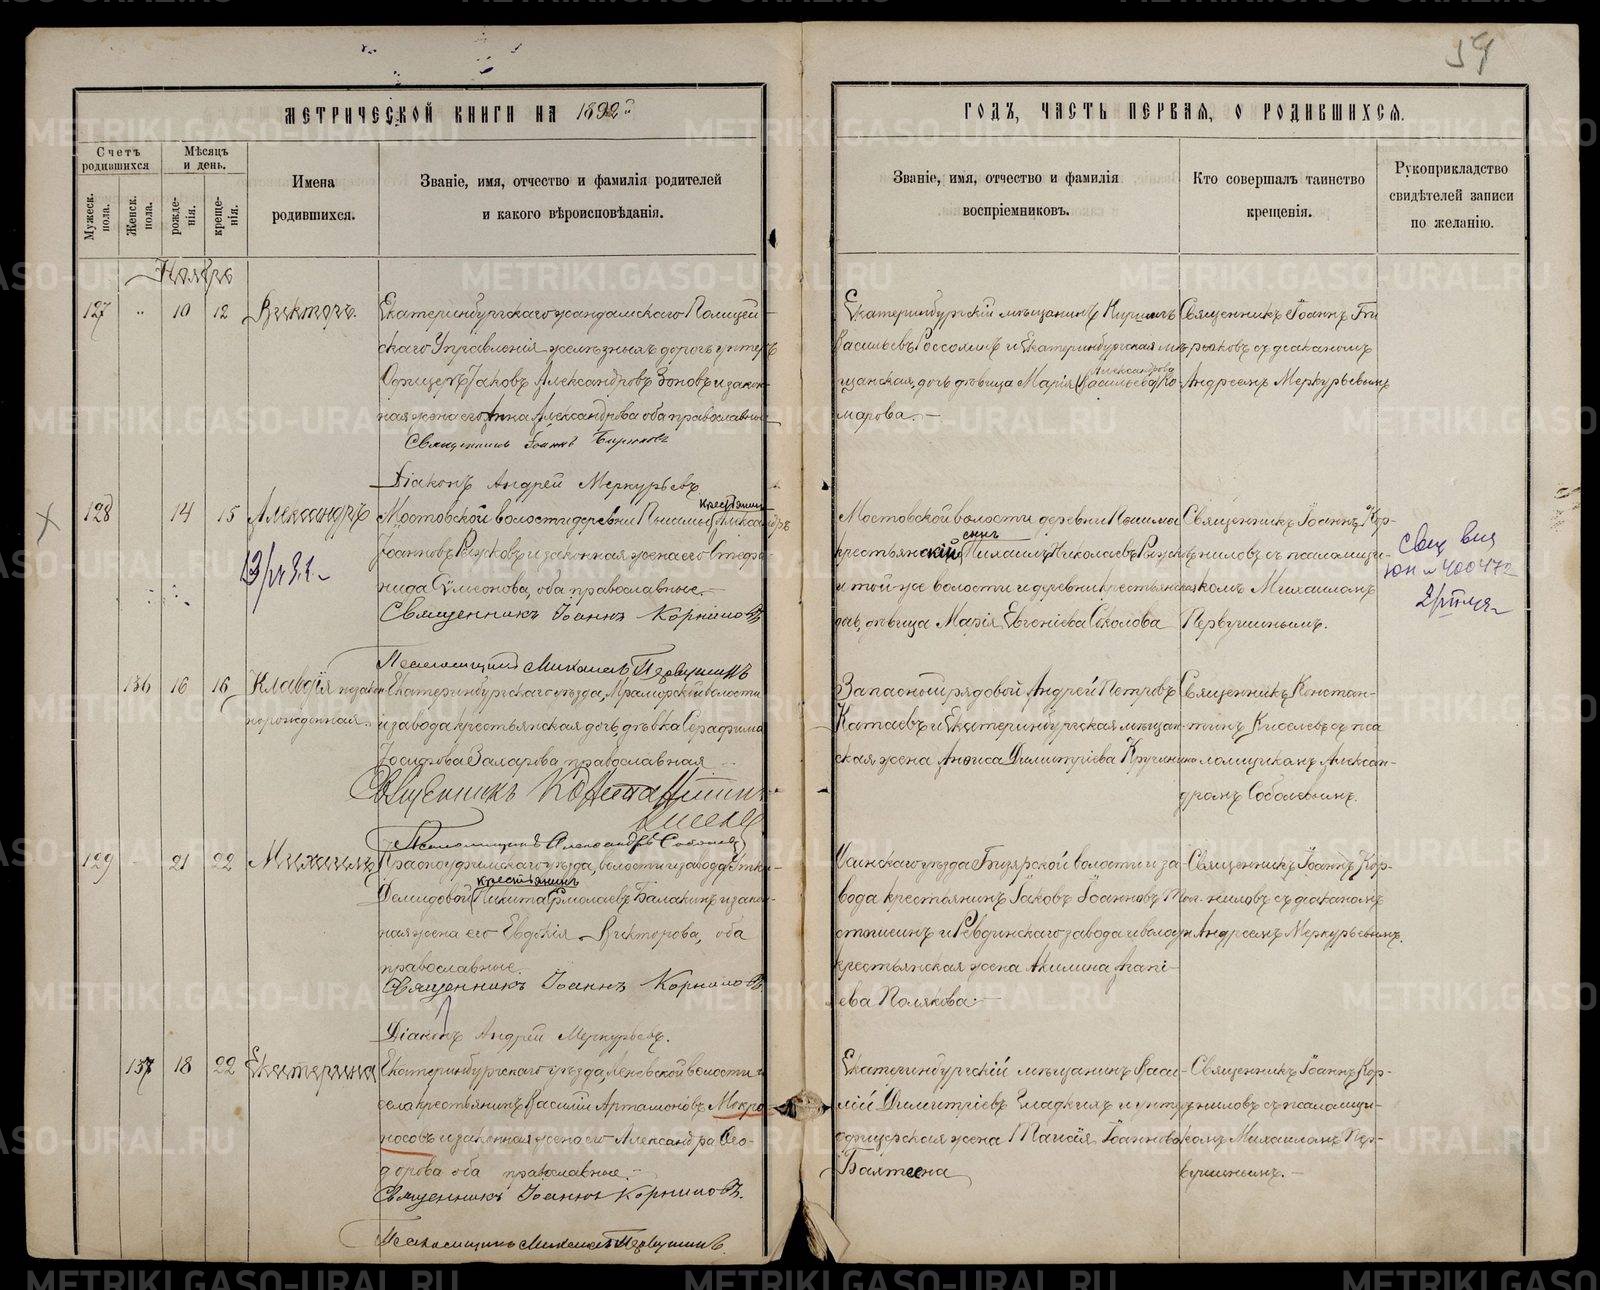 59
МЕТРИЧЕСКОЙ КНИГИ НА 1892й
ГОДЪ, ЧАСТЬ ПЕРВАЯ, О РОДИВШИХСЯ.
Счетъ родившихся
Мѣсяцъ и день.
Мужеск. пола.
Женск. пола.
рожде- нія.
креще- нія.
Имена
родившихся.
Званіе, имя, отчество и фамилія родителей
и какого вѣроисповѣданія.
Званіе, имя, отчество и фамилія
воспріемниковъ.
Кто совершалъ таинство
крещенія.
Рукоприкладство
свидѣтелей записи
по желанію.
Ноябрь
127 " 10 12 Викторъ.
Екатеринбургскаго жандамскаго Полицей-
скаго Управленія желѣзныхъ дорогъ унтеръ
Офицеръ Іаковъ Александровъ Зоновъ и закон-
ная жена его Анна Александрова оба православные
Священникъ Іоаннъ Бирюковъ
Діаконъ Андрей Меркурьевъ
Екатеринбургскій мѣщанинъ Кириллъ
Васильевъ Россолинъ и Екатеринбургская мѣ-
щанская дочь дѣвица Марія Васильева Ко-
Александрова
марова.-
Священникъ Іоаннъ Би
рюковъ съ діакономъ
Андреемъ Меркурьевымъ
128 14 15 Александръ
Крестьянинъ
Мостовской волости деревни Пышмы Александръ
Іоанновъ Рѣжовъ и законная жена его Стефа-
нида Сѵмеонова, оба православные.-
Священникъ Іоаннъ Корниловъ
Псаломщикъ Михаилъ Первушинъ
Мостовской волости деревни Пышмы
сынъ
крестьянскій Михаилъ Николаевъ Рѣжовъ
и той же волости и деревни крестьянская
дочь, дѣвица Марія Евгеніева Соколова
Священникъ Іоаннъ Кор-
ниловъ съ псаломщи-
комъ Михаиломъ
Первушинымъ.
свид выд
ЮН № 400472
136 16 16 Клавдія незакон-
норожденная.
Екатеринбургскаго уѣзда, Мраморской волости
и завода крестьянская дочь дѣвка Серафима
Іосифова Захарова, православная
Священникъ Константинъ
Киселевъ
Псаломщикъ Александръ Соболевъ
Запасный рядовой Андрей Петровъ
Катаевъ и Екатеринбургская мѣщан-
ская жена Анфиса Димитріева Кругликова
Священникъ Констан-
тинъ Киселевъ съ пса
ломщикомъ Алексан-
дромъ Соболевымъ.
129 - 21 22 Михаилъ
Красноуфимскаго уѣзда, волости и завода Утки-
крестьянинъ
Демидовой Никита Ермолаевъ Балакинъ и закон-
ная жена его Евдокія Викторова, оба
православные.
Священникъ Іоаннъ Корниловъ
Діаконъ Андрей Меркурьевъ.
Осинскаго уѣзда Бизярской волости и за-
вода крестьянинъ Іаковъ Іоанновъ
и Ревдинскаго завода и волости
крестьянская жена Акилина Агапі-
ева Полякова.-
Священникъ Іоаннъ Кор-
ниловъ съ діакономъ
Андреемъ Меркурьевымъ.
137 18 22 Екатерина
Екатеринбургскаго уѣзда, Леневской волости и
села крестьянинъ Василій Артамоновъ Мокро-
носовъ и законная жена его Александра Ѳео-
дорова оба православные.-
Священникъ Іоаннъ Корниловъ.
Псаломщикъ Михаилъ Первушинъ.
Екатеринбургскій мѣщанинъ Васи-
лій Димитріевъ Гладкихъ и унтеръ
офицерская жена Таисія Іоаннова
Священникъ Іоаннъ Кор-
ниловъ съ псаломщи-
комъ Михаиломъ Пер-
вушинымъ.-